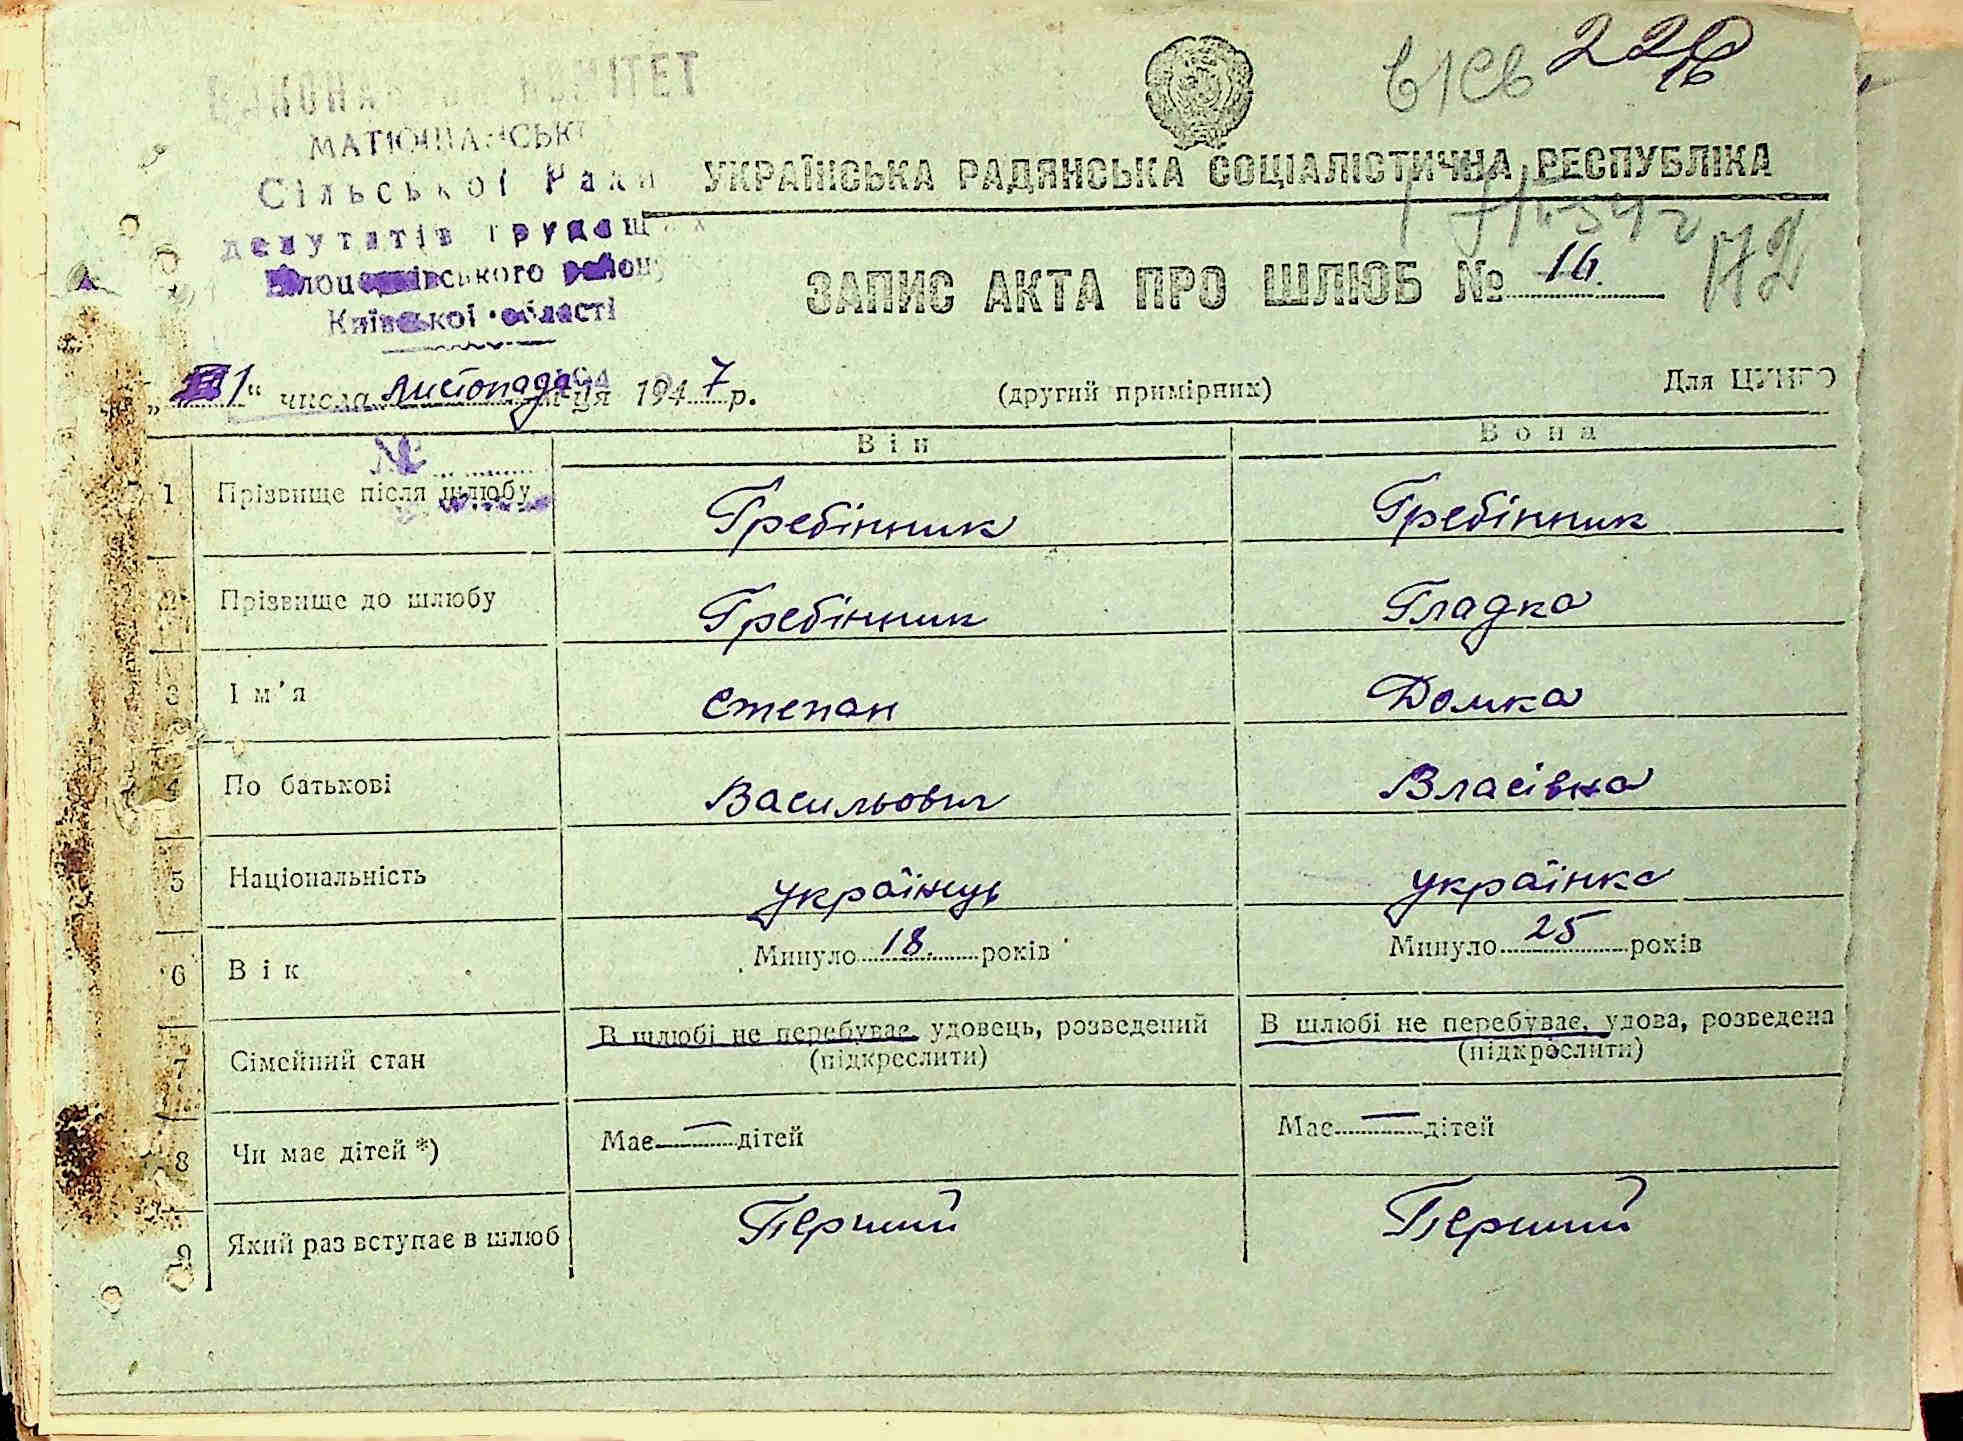 ВИКОНАВЧИЙ КОМІТЕТ
МАТЮШАНСЬКОЇ
Сільської Ради
депутатів трудящих
Білоцерківського району
Київської області
226
УКРАЇНСЬКА РАДЯНСЬКА СОЦІАЛІСТИЧНА РЕСПУБЛІКА
ЗАПИС АКТА ПРО ШЛЮБ № 16.
172
1" числа листопада ця 1947 р.
(другий примірник)
Для ЦУНГО
Він
Вона
1 Прізвище після шлюбу Гребінник Гребінник
2 Прізвище до шлюбу Гребінник Гладка
3 Ім'я Степан Домка
4 По батькові Васильович Власівна
5 Національність українець українка
6 Вік Минуло 18. років Минуло 25 років
7 Сімейний стан В шлюбі не перебуває, удовець, розведений В шлюбі не перебуває, удова, розведена
(підкреслити) (підкреслити)
8 Чи має дітей *) Має — дітей Має — дітей
9 Який раз вступає в шлюб Перший Перший